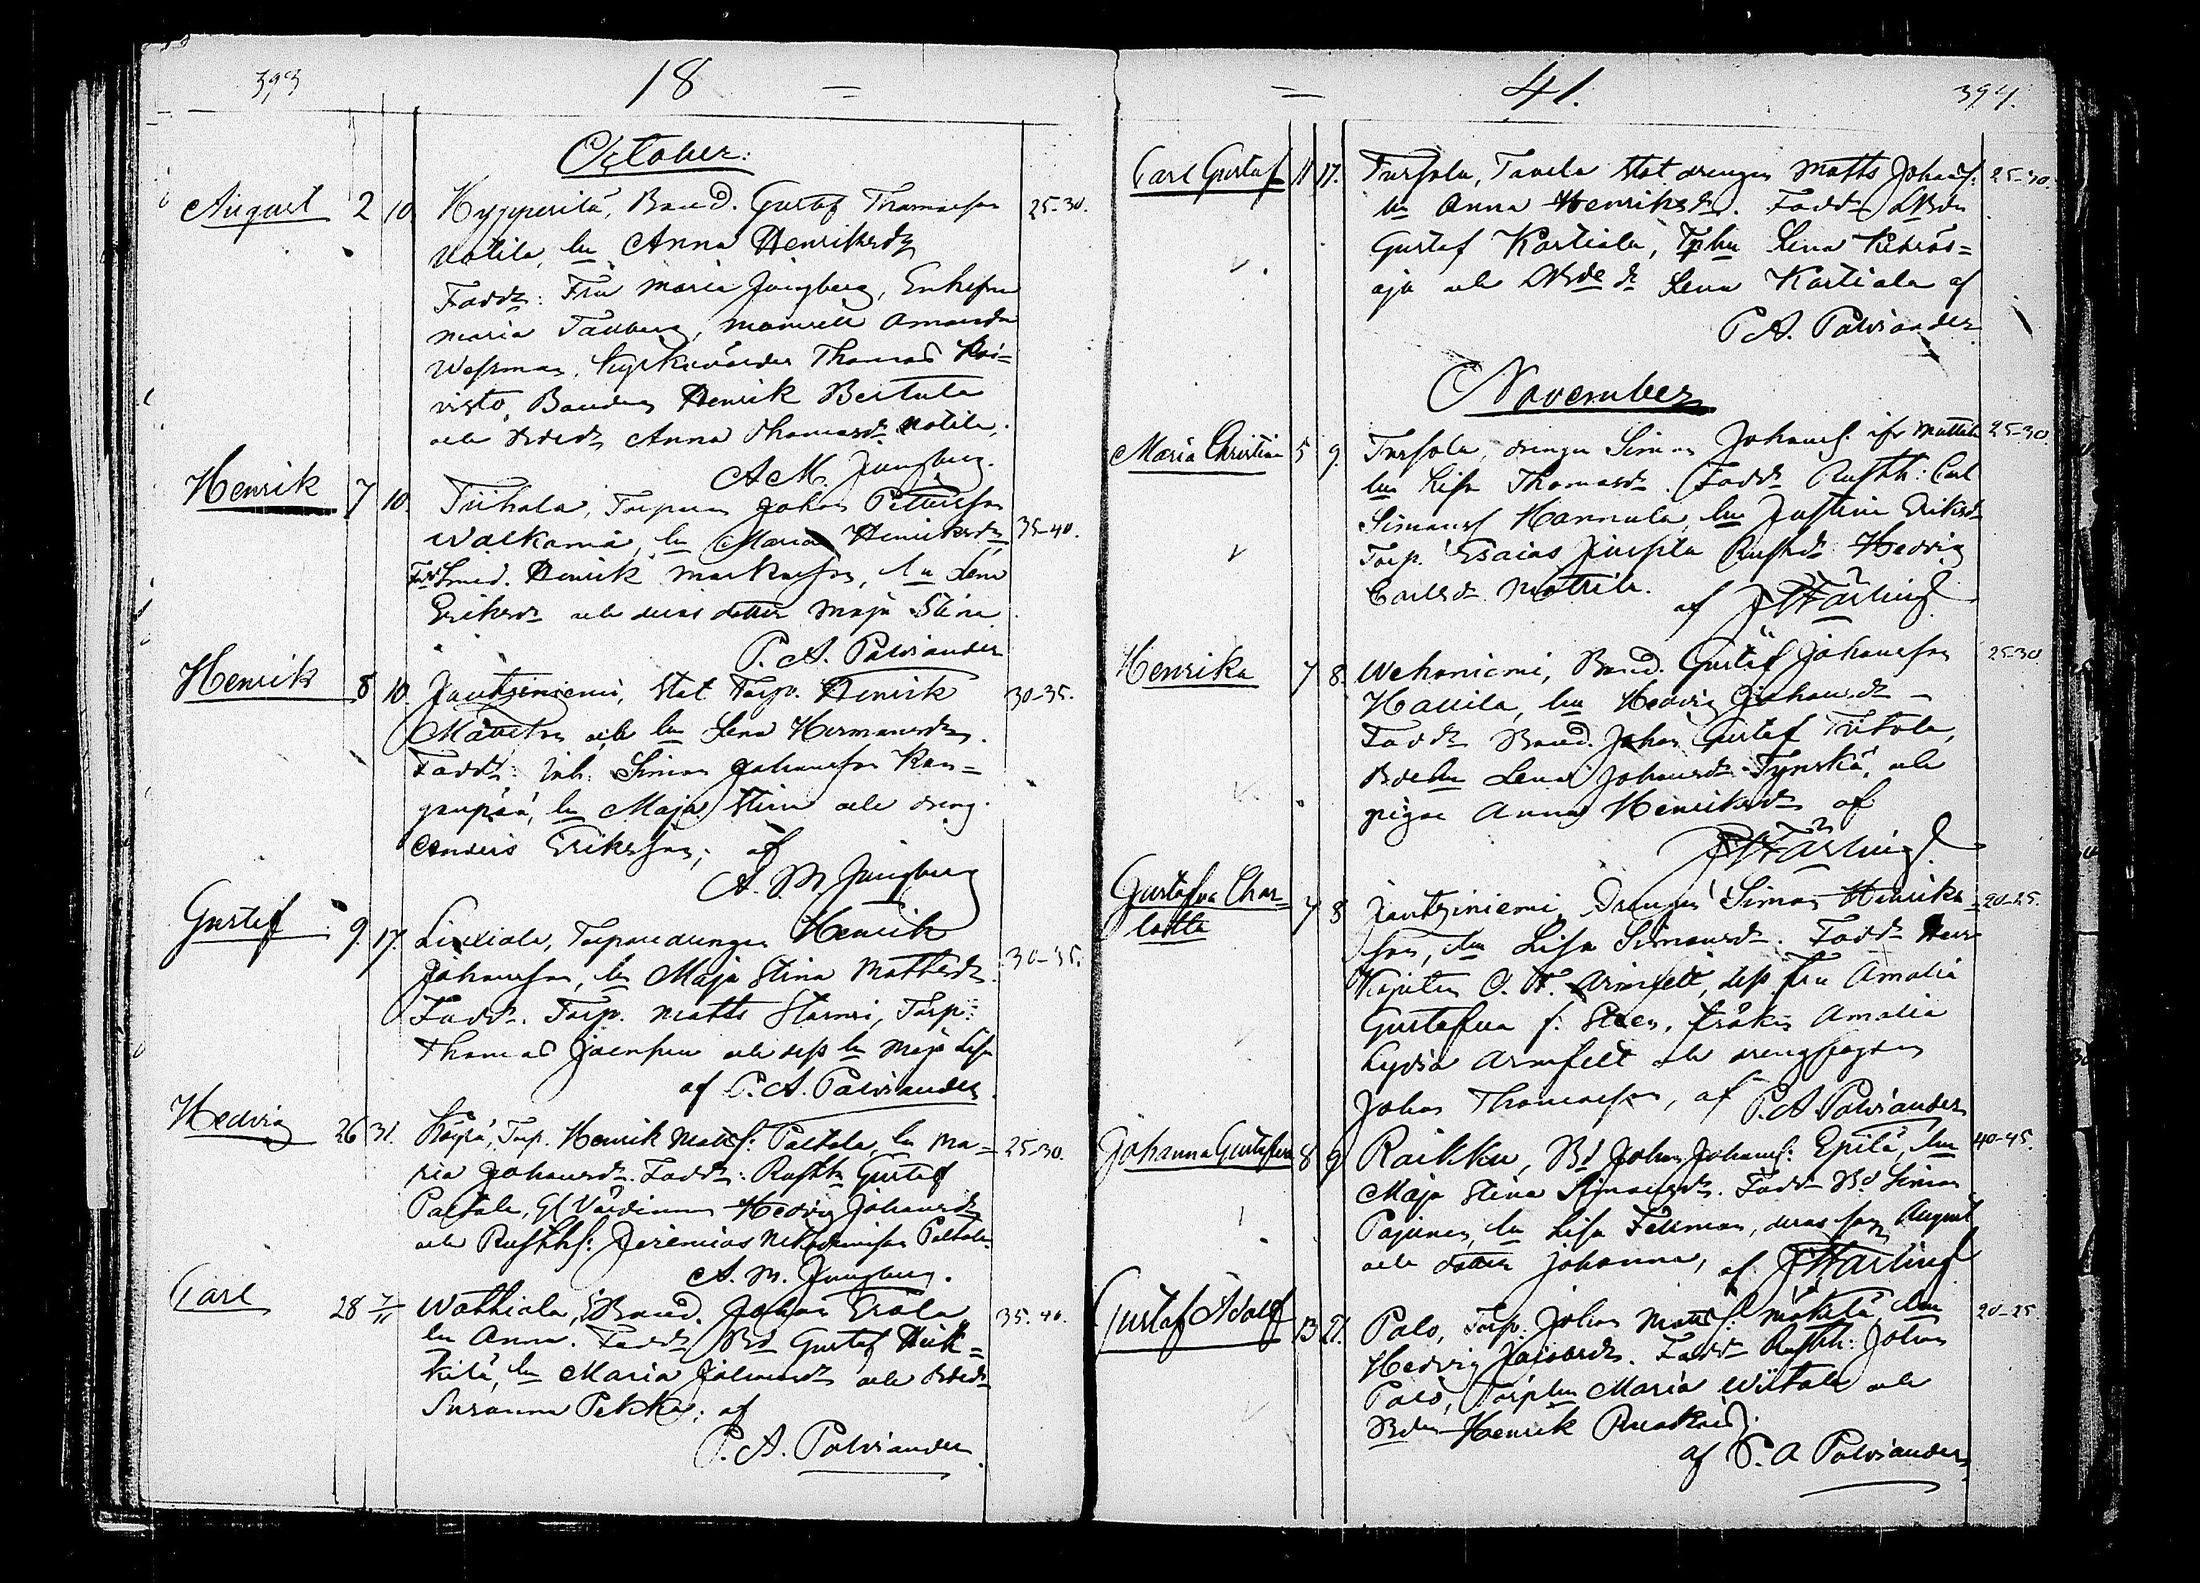 393
18 =
October:
August 2 10 Hypperilä, Bond. Gustaf Thomasson 25-30.
Uotila, hu Anna Henriksdr
Faddr: Fru Maria Jungberg, Enkefru
Maria Tallberg, mamsell Amanda
Wessman, Kyrkovärden Thomas Koi=
visto, Bonden Henrik Bertula
och Bdedr Anna Thomasdr Uotila,
A. M. Jungberg.
Henrik 7 10. Tiihala, Torparen Johan Pettersson
Walkama, hu Maria Henriksdr 35-40.
Fdr Smed. Henrik Markusson, hu Lena
Eriksdr och deras dotter Maja Stina
P. A. Palviander
Henrik 8 10. Jautziniemi, Stat Torp. Henrik 30-35.
Mattsson och hu Lena Hermansdr.
Faddr: Inh. Simon Johansson Kan=
ganpää, hu Maja Stina och dreng.
Anders Eriksson; af
A. M. Jungberg
Gustaf 9. 17. Liuxiala, Torparedrengen Henrik
Johansson, hu Maja Stina Mattsdr. 30-35.
Faddr. Torp. Matts Starmi, Torp:
Thomas Joenpuu och dess hu Maja Lisa
af P. A. Palviander
Hedvig 26 31. Köyrä, Torp. Henrik Matss: Paltala, hu Ma= 25-30.
ria Johansdr. Faddr: Rusth. Gustaf
Paltala, Gl Värdinnan Hedvig Johansdr
och Rusthhs: Jeremias Nikodemusson Paltala.
A. M. Jungberg.
Carl 28 7/11 Wathiala, Bond. Johan Erola 35-40.
hu Anna. Faddr Bd Gustaf Heik=
kilä, hu Maria Johansdr och Bdedr
Susanna Pekka; af
P. A. Palviander.
= 41. 394.
Carl Gustaf 11 17. Tursola, Tavela Stat drengen Matts Johanss: 25-30.
hu Anna Henriksdr. Faddr Bden
Gustaf Kartiala, Tphu Lena
oja och Bdedr Lena Kartiala af
P. A. Palviander
November
Maria Christina 5 9. Tursola, drengen Simon Johanss. ifr Mattila 25-30.
hu Lisa Thomasdr. Faddr Rusth: Carl
Simonss Hannula, hu Justina Eriksdr
Torp. Esaias Rusthdr Hedvig
Carlsdr Mattila. af J. W. Färling
Henrika 7 8. Wehoniemi, Bond. Gustaf Johansson 25-30
Hallila, hu Hedvig Johansdr -
Faddr Bond. Johan Gustaf Tiitola,
Bdehu Lena Johansdr Tynskä, och
pigan Anna Henriksdr af
J. W. Färling
Gustafva Char=
lotta 7 8 Jautziniemi, Drengen Simon Henriks= 20-25.
son, hu Lisa Simonsdr. Faddr Herr
Kapiten O. W. Armfelt, dess fru Amalia
Gustafva f: Steen, fröken Amalia
Lydia Armfelt och drengpojken
Johan Thomasson, af P. A. Palviander
Johanna Gustafva 8 9 Raikku, Bd Johan Johanss: Epilä, hu 40-45.
Maja Stina Simonsdr. Faddr Bd Simon
Pajunen, hu Lisa Fellman, deras son August
och dotter Johanna, af J. W. Färling
Gustaf Adolf 13 21. Palo, Torp: Johan Matss: Mäkilä, hu 20-25
Hedvig Jacobsdr. Faddr Rusth: Johan
Palo, Torphu Maria Wiitala och
Bden Henrik
af P. A Palviander